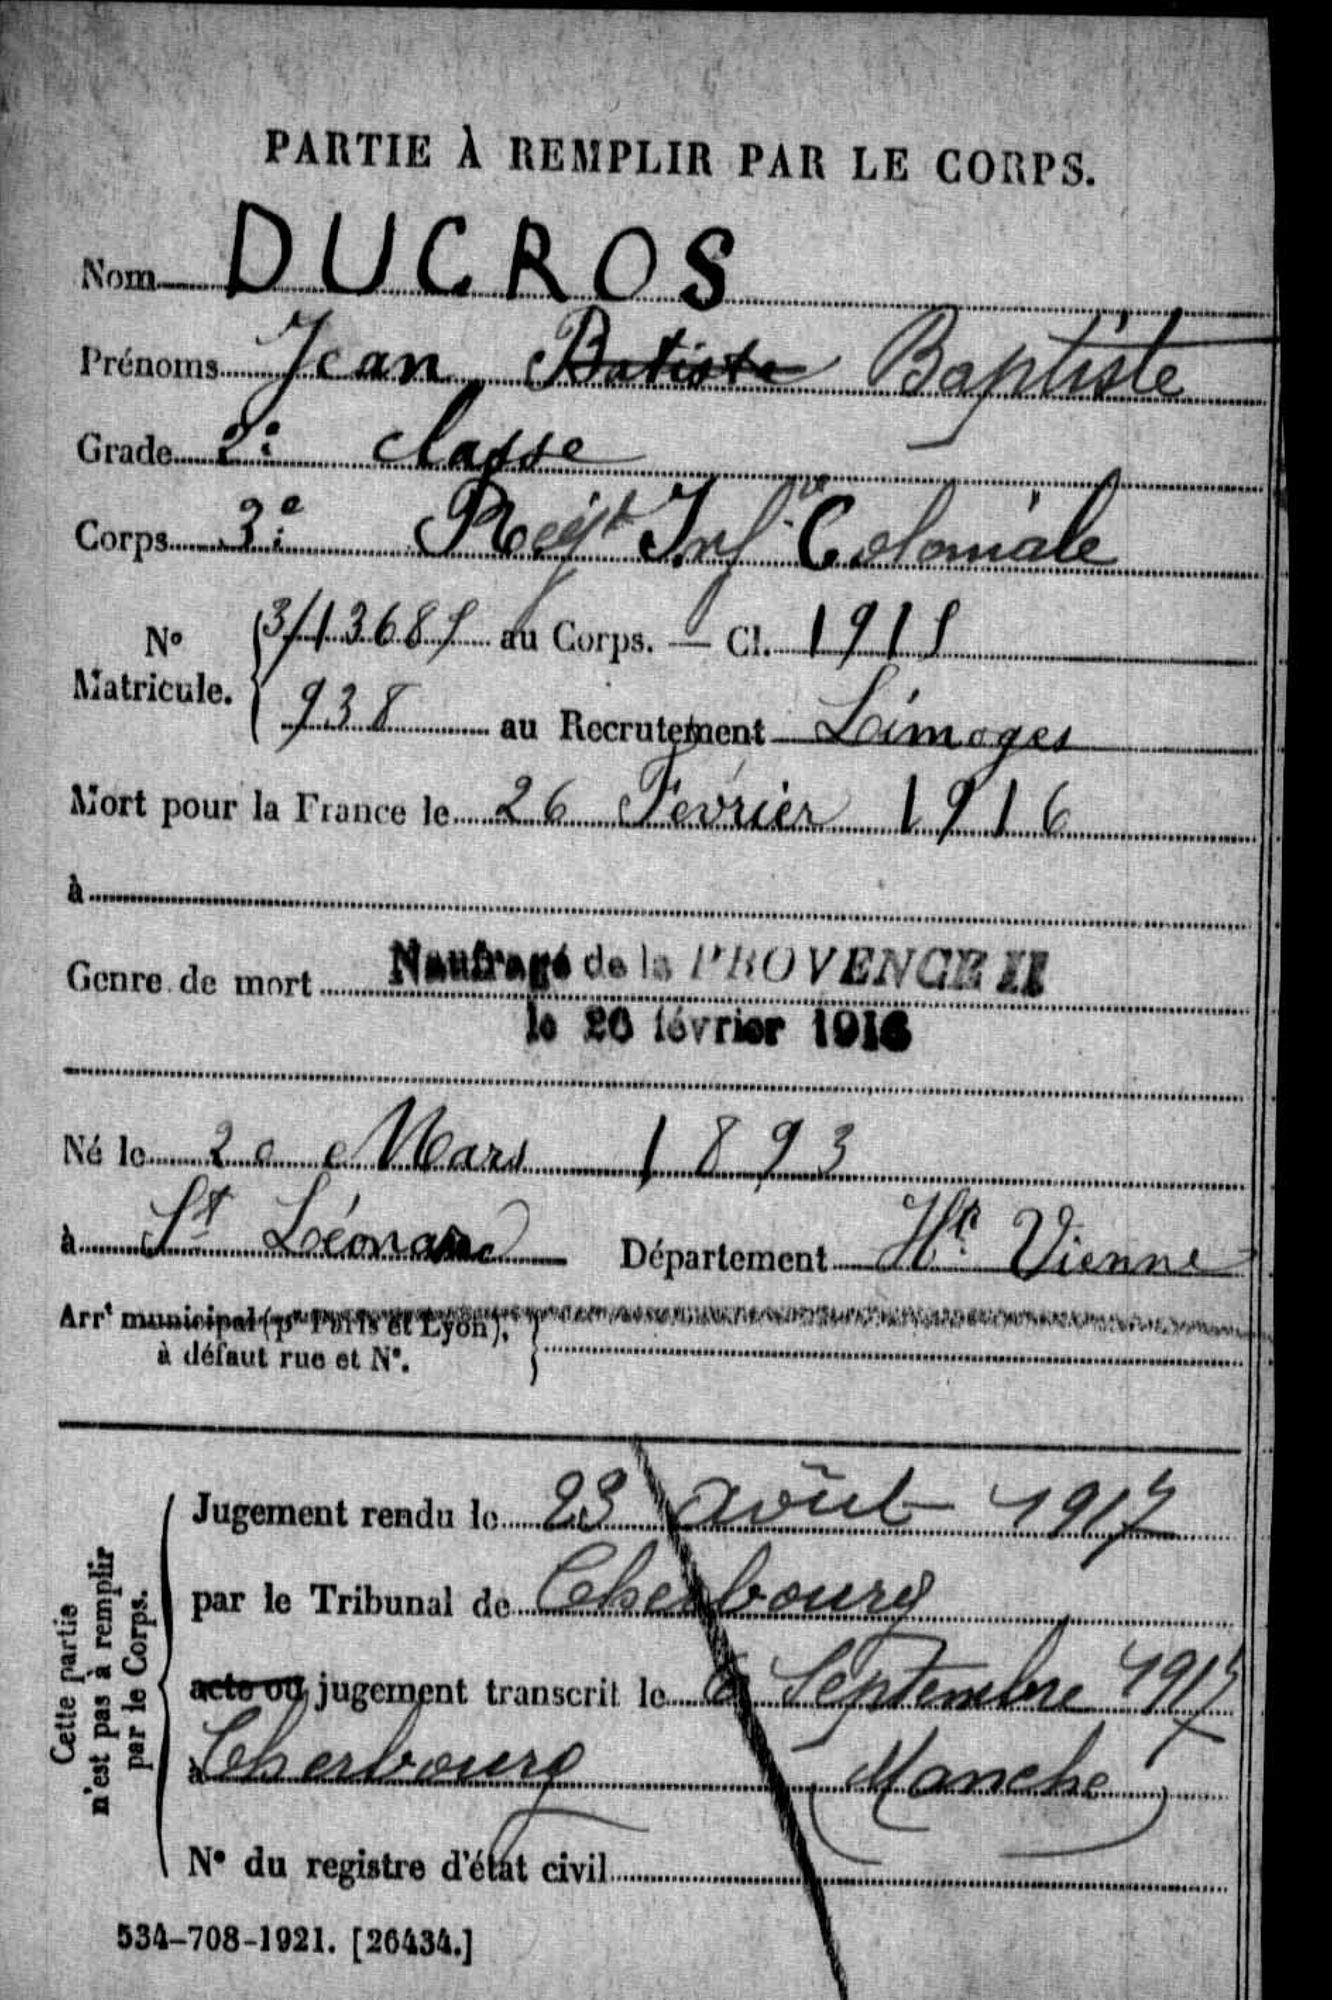 PARTIE À REMPLIR PAR LE CORPS.
Nom DUCROS
Prénoms Jean Batiste Baptiste
Grade 2e classe
Corps 3e Regt Infie Coloniale
No Matricule. 3/13685 au Corps. — Cl. 1915
938 au Recrutement Limoges
Mort pour la France le 26 Février 1916
à
Genre de mort Naufragé de la PROVENCE II
le 26 février 1916
Né le 20 Mars 1893
à St Léonard Département Hte Vienne
Arrt municipal (pr Paris et Lyon),
à défaut rue et N°.
Cette partie
n'est pas à remplir
par le Corps.
Jugement rendu le 23 août 1917
par le Tribunal de Cherbourg
acte ou jugement transcrit le Septembre 1917
à Cherbourg (Manche)
N° du registre d'état civil
534-708-1921. [26434.]